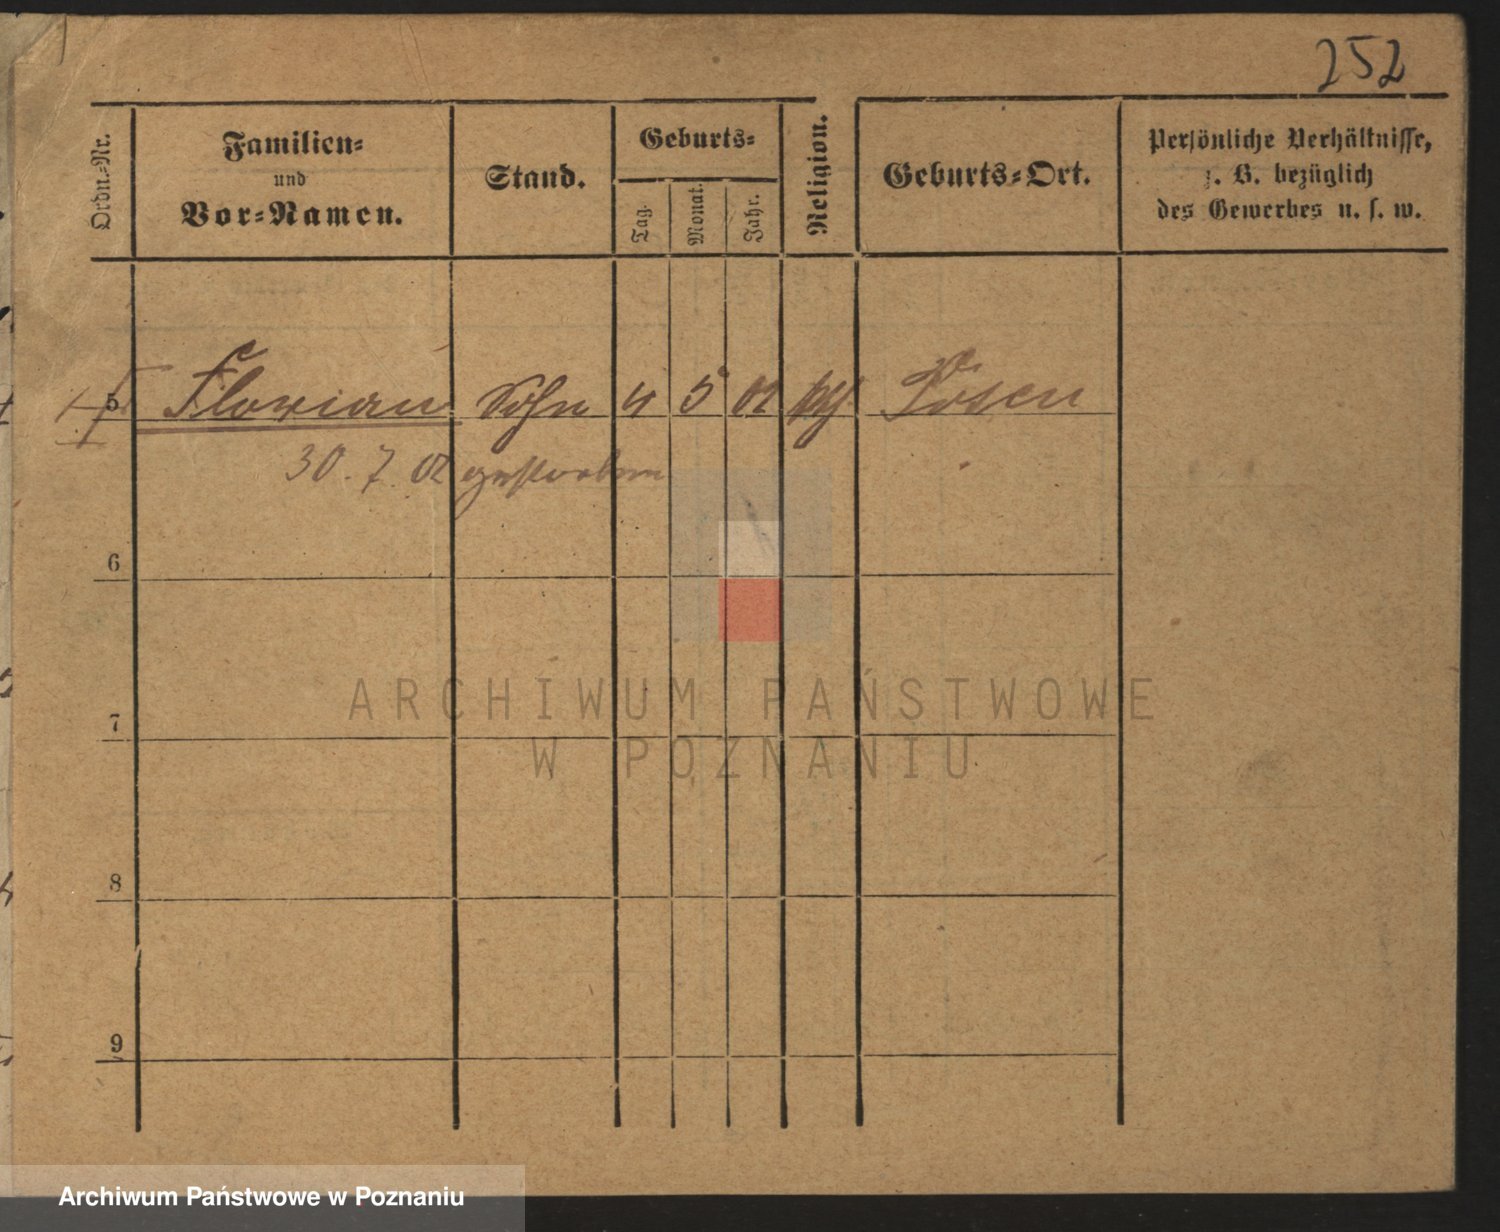 252
Ordn.-Nr.
Familien-
und
Vor-Namen.
Stand.
Geburts-
Tag.
Monat.
Jahr.
Religion.
Geburts-Ort.
Persönliche Verhältnisse,
z. B. bezüglich
des Gewerbes u. s. w.
5 Florian Sohn 4 5 02 kth Posen
30. 7. 02 gestorben
6
7
8
9
ARCHIWUM PAŃSTWOWE
W POZNANIU
Archiwum Państwowe w Poznaniu